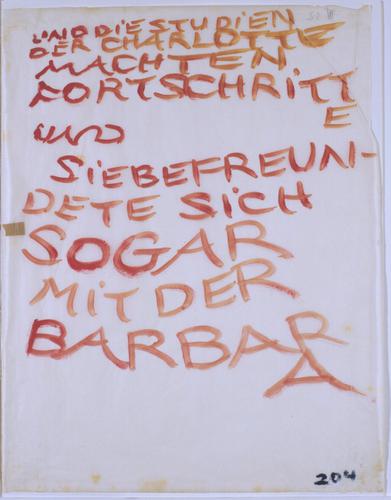 UND DIE STUDIEN
DER CHARLOTTE
MACHTEN
FORTSCHRITT
E
UND
SIEBEFREUN-
DETE SICH
SOGAR
MIT DER
BARBAR
A
204